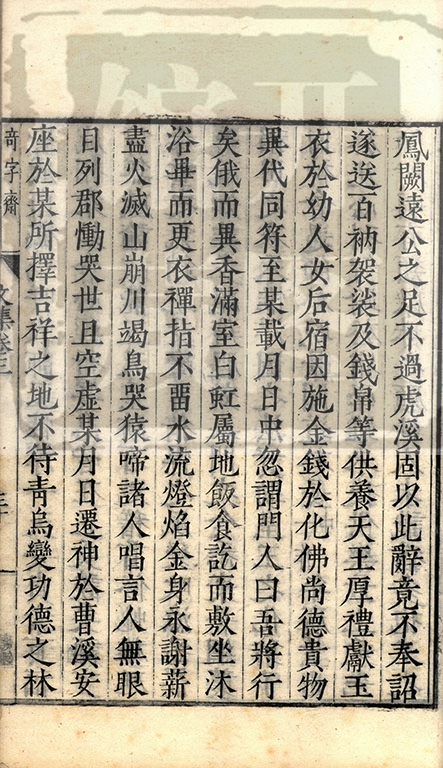 鳳闕遠公之足不過虎溪固以此辭竟不奉詔
遂送百衲袈裟及錢帛等供養天王厚禮獻玉
衣於幼人女后宿因施金錢於化佛尚德貴物
異代同符至某載月日中忽謂門人曰吾將行
矣俄而異香滿室白虹屬地飯食訖而敷坐沐
浴畢而更衣禪指不畱水流燈焰金身永謝薪
盡火滅山崩川竭鳥哭猿啼諸人唱言人無眼
目列郡慟哭世且空虛某月日遷神於曹溪安
座於某所擇吉祥之地不待靑烏變功德之林
奇字齋
文集卷三